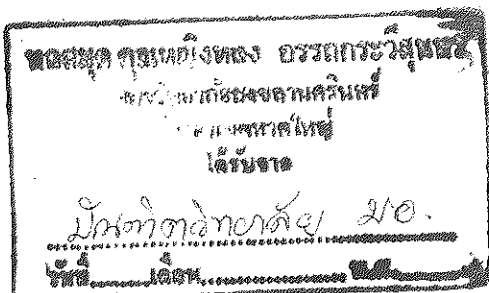 หอสมุด คุณหญิงหลง อรรถกระวีสุนทร
สงขลานครินทร์
หาดใหญ่
ได้รับจาก
บัณฑิตวิทยาลัย มอ.
วันที่........เดือน....................